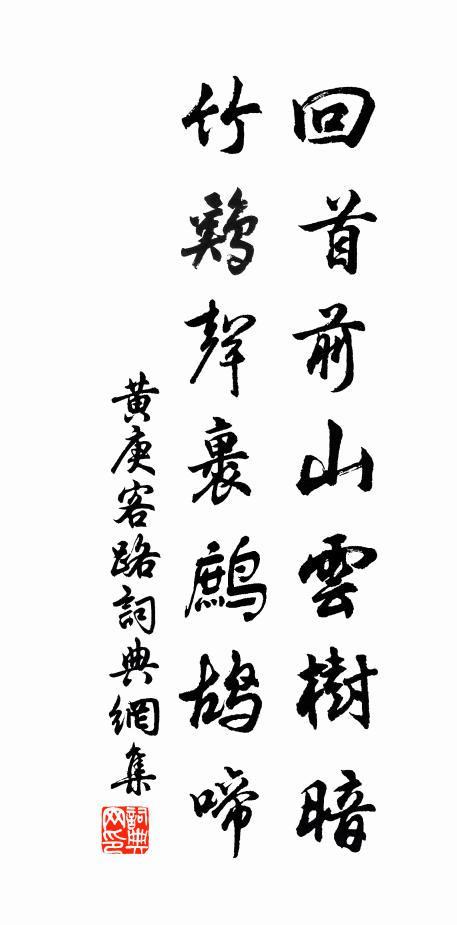 回首前山雲樹暗
竹鷄聲裏鷓鴣啼
黄庚客路詞典網集
詞典網印